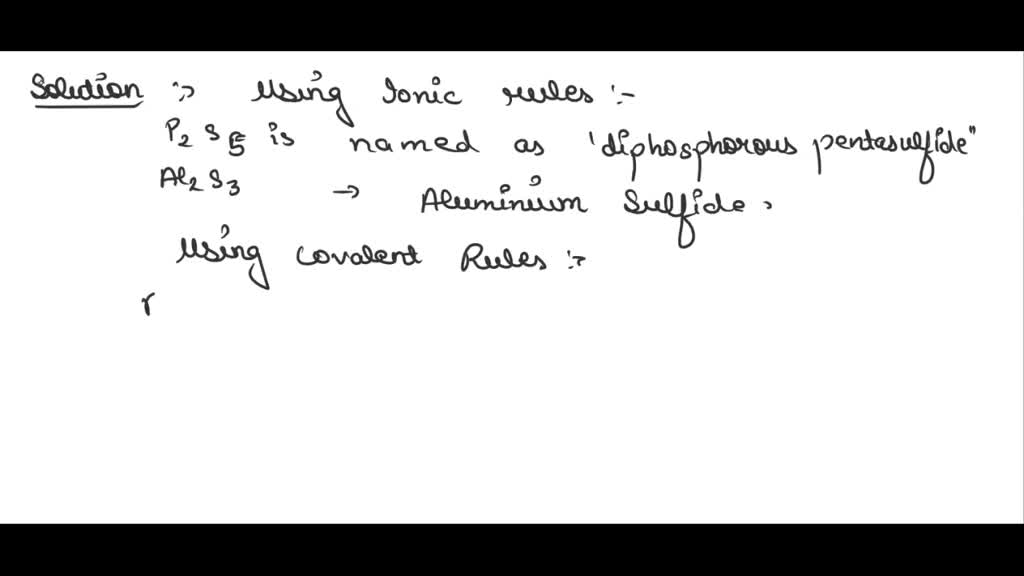 Solution :- Using Ionic rules :-
P2 S5 is named as 'diphosphorous pentasulfide"
Al2 S3 → Aluminium Sulfide.
Using covalent Rules :-
r